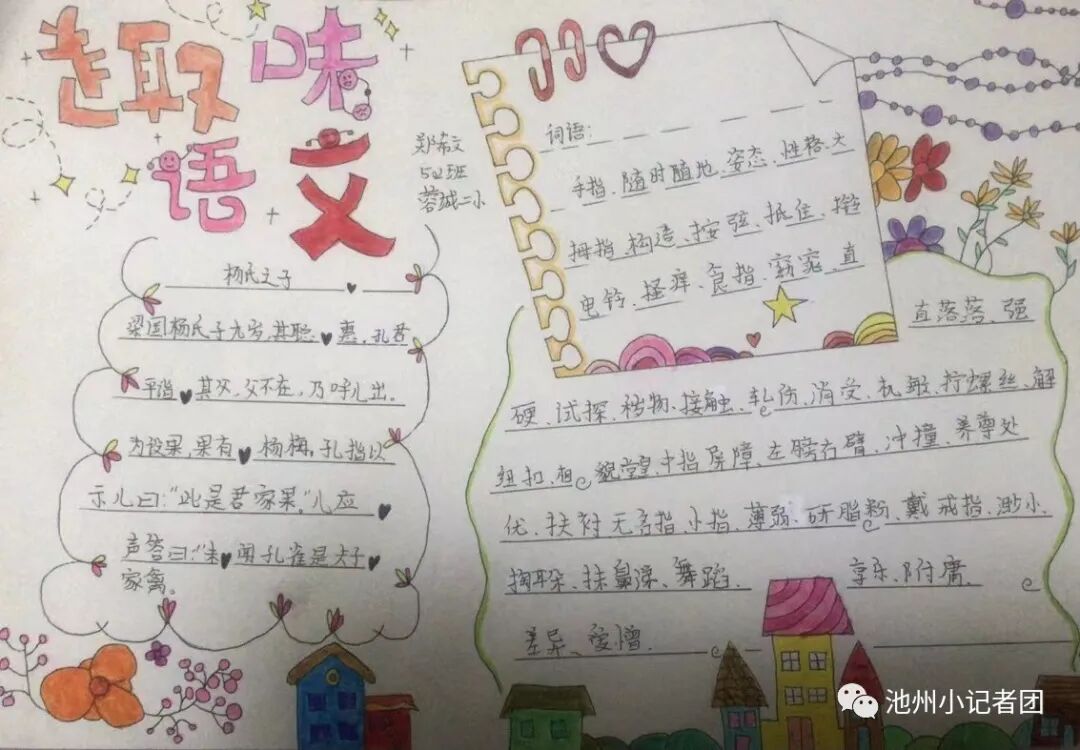 趣味
语文
郑希文
502班
蓉城二小
杨氏之子
梁国杨氏子九岁，甚聪惠，孔君
平诣其父，父不在，乃呼儿出。
为设果，果有杨梅，孔指以
示儿曰：“此是君家果。”儿应
声答曰：“未闻孔雀是夫子
家禽。
词语：
手指、随时随地、姿态、性格、大
拇指、构造、按弦、抵住、揿
电铃、搔痒、食指、窈窕、直
直落落、强
硬、试探、秽物、接触、轧伤、消受、机敏、拧螺丝、解
纽扣、相貌堂皇、中指、屏障、左膀右臂、冲撞、养尊处
优、扶衬、无名指、小指、薄弱、研脂粉、戴戒指、渺小、
掏耳朵、抹鼻涕、舞蹈、享乐、附庸、
差异、爱憎.
池州小记者团